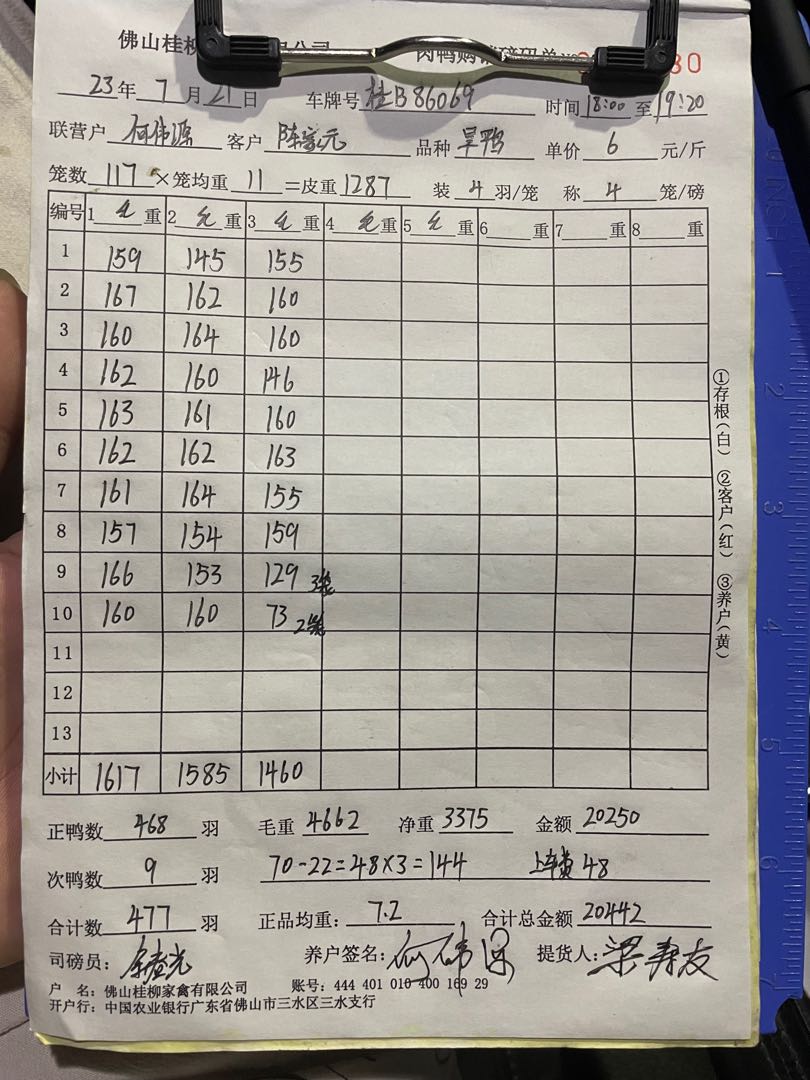 佛山桂柳 公司 肉鸭购销磅码单 80
23年7月21日 车牌号 桂B86069 时间 18:00 至 19:20
联营户 何伟源 客户 陈家元 品种 旱鸭 单价 6 元/斤
笼数 117 ×笼均重 11 =皮重 1287 装 4 羽/笼 称 4 笼/磅
编号 1 毛 重 2 毛 重 3 毛 重 4 毛 重 5 毛 重 6 重 7 重 8 重
1 159 145 155
2 167 162 160
3 160 164 160
4 162 160 146
5 163 161 160
6 162 162 163
7 161 164 155
8 157 154 159
9 166 153 129 3笼
10 160 160 73 2笼
11
12
13
小计 1617 1585 1460
①存根(白) ②客户(红) ③养户(黄)
正鸭数 468 羽 毛重 4662 净重 3375 金额 20250
次鸭数 9 羽 70-22=48×3=144 上车费 48
合计数 477 羽 正品均重: 7.2 合计总金额 20442
司磅员: 养户签名: 何伟源 提货人: 梁寿友
户 名: 佛山桂柳家禽有限公司 账号: 444 401 010 400 169 29
开户行: 中国农业银行广东省佛山市三水区三水支行
INCH 1
2
3
4
5
6
7